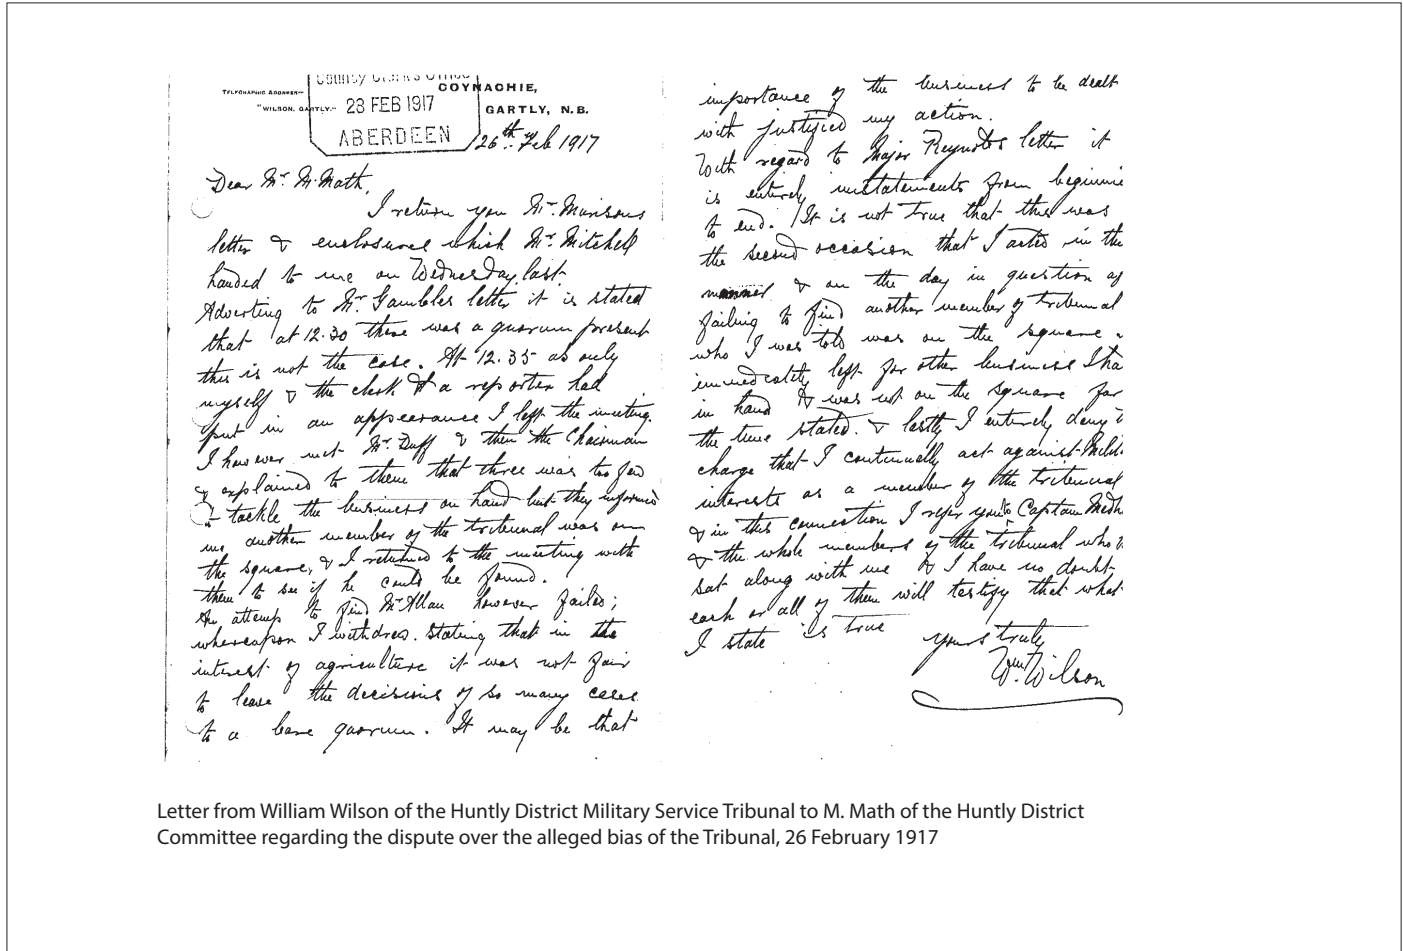 County Clerk's Office
28 FEB 1917
ABERDEEN
TELEGRAPHIC ADDRESS—
"WILSON, GARTLY."
COYNACHIE,
GARTLY, N.B.
26th Feb 1917
Dear Mr. McMath,
I return you Mr.
letter & enclosures which Mr. Mitchell
handed to me on Wednesday last.
Adverting to Mr Gambles letter it is stated
that at 12.30 there was a quorum present
this is not the case. At 12.35 as only
myself & the clerk & a reporter had
put in an appearance I left the meeting.
I however met Mr. Duff & then the Chairman
& explained to them that three was too few
to tackle the business on hand but they informed
me another member of the tribunal was on
the square, & I returned to the meeting with
them to see if he could be found.
An attemp to find Mr Allan however failed;
whereupon I withdrew. Stating that in the
interest of agriculture it was not fair
to leave the decisions of so many cases
to a bare quorum. It may be that
importance of the business to be dealt
with justified my action.
With regard to Major Reynolds letter it
is entirely mistatements from beginni
to end. It is not true that this was
the second occasion that I acted in the
manner & on the day in question af
failing to find another member of tribunal
who I was told was on the square
immediately left for other business I ha
in hand & was not on the square for
the time stated. & lastly I entirely deny
charge that I continually act against Milit
interests as a member of the tribunal
& in this connection I refer you to Captain
& the whole members of the tribunal who
sat along with me & I have no doubt
each or all of them will testify that what
I state is true
Yours truly
Wm. Wilson
Letter from William Wilson of the Huntly District Military Service Tribunal to M. Math of the Huntly District
Committee regarding the dispute over the alleged bias of the Tribunal, 26 February 1917